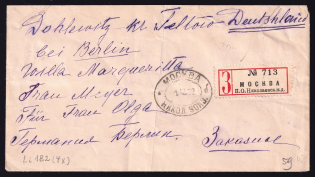 Dahlewitz kr Teltow - Deutschland
bei Berlin
Villa Margueritta
Frau Meyer
Für Frau Olga
Германия Берлин.
Заказное
МОСКВА
З
№ 713
МОСКВА
П.О. Николаевск. ж.д.